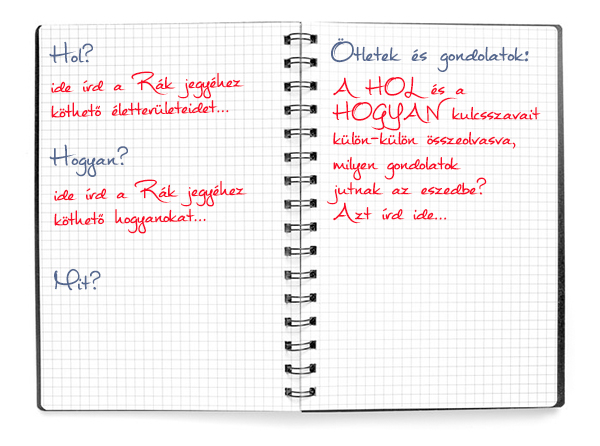 Hol?
ide írd a Rák jegyéhez
köthető életterületeidet...
Hogyan?
ide írd a Rák jegyéhez
köthető hogyanokat...
Mit?
Ötletek és gondolatok:
A HOL és a
HOGYAN kulcsszavait
külön-külön összeolvasva,
milyen gondolatok
jutnak az eszedbe?
Azt írd ide...